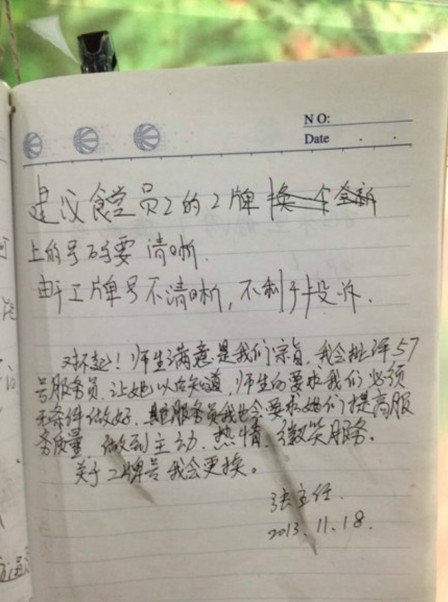 NO:
Date
建议食堂员工的工牌换个全新
上的号码要清晰.
由于工牌号不清晰,不利于投诉.
对不起!师生满意是我们宗旨,我会批评57
号服务员,让她以后知道,师生的要求我们必须
无条件做好,其它服务员我也会要求她们提高服
务质量,做到主动.热情.微笑服务。
关于工牌号我会更换。
张主任.
2013.11.18.